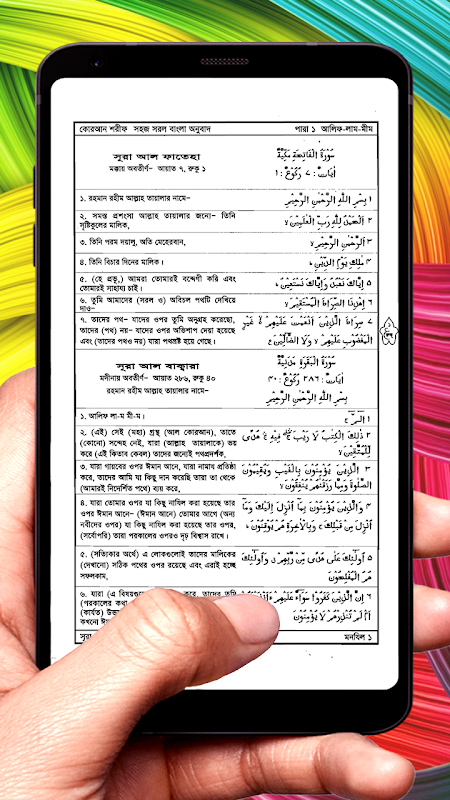 কোরআন শরীফ সহজ সরল বাংলা অনুবাদ
পারা ১ আলিফ-লাম-মীম
সূরা আল ফাতেহা
মক্কায় অবতীর্ণ- আয়াত ৭, রুকু ১
سُوْرَةُ الْفَاتِحَةِ مَكِّيَّةٌ
اٰيَاتُ : ٧ رُكُوْعُ : ١
১. রহমান রহীম আল্লাহ তায়ালার নামে-
١ بِسْمِ اللّٰهِ الرَّحْمٰنِ الرَّحِيْمِ
২. সমস্ত প্রশংসা আল্লাহ তায়ালার জন্যে- তিনি
সৃষ্টিকুলের মালিক,
٢ اَلْحَمْدُ لِلّٰهِ رَبِّ الْعٰلَمِيْنَ ۙ
৩. তিনি পরম দয়ালু, অতি মেহেরবান,
٣ الرَّحْمٰنِ الرَّحِيْمِ ۙ
৪. তিনি বিচার দিনের মালিক।
٤ مٰلِكِ يَوْمِ الدِّيْنِ ؕ
৫. (হে প্রভু,) আমরা তোমারই বন্দেগী করি এবং
তোমারই সাহায্য চাই।
٥ اِيَّاكَ نَعْبُدُ وَاِيَّاكَ نَسْتَعِيْنُ ؕ
৬. তুমি আমাদের (সরল ও) অবিচল পথটি দেখিয়ে
দাও-
٦ اِهْدِنَا الصِّرَاطَ الْمُسْتَقِيْمَ ۙ
৭. তাদের পথ- যাদের ওপর তুমি অনুগ্রহ করেছো,
তাদের (পথ) নয়- যাদের ওপর অভিশাপ দেয়া হয়েছে
এবং (তাদের পথও নয়) যারা পথভ্রষ্ট হয়ে গেছে।
٧ صِرَاطَ الَّذِيْنَ اَنْعَمْتَ عَلَيْهِمْ ۙ غَيْرِ
الْمَغْضُوْبِ عَلَيْهِمْ وَلَا الضَّآلِّيْنَ ع
সূরা আল বাক্বারা
মদীনায় অবতীর্ণ- আয়াত ২৮৬, রুকু ৪০
রহমান রহীম আল্লাহ তায়ালার নামে-
سُوْرَةُ الْبَقَرَةِ مَدَنِيَّةٌ
اٰيَاتُ : ٢٨٦ رُكُوْعُ : ٤٠
بِسْمِ اللّٰهِ الرَّحْمٰنِ الرَّحِيْمِ
১. আলিফ লা-ম মী-ম।
١ الٓمّٓ ۚ
২. (এই) সেই (মহা) গ্রন্থ (আল কোরআন), তাতে
(কোনো) সন্দেহ নেই, যারা (আল্লাহ তায়ালাকে) ভয়
করে (এই কিতাব কেবল) তাদের জন্যেই পথপ্রদর্শক,
٢ ذٰلِكَ الْكِتٰبُ لَا رَيْبَ ۛ فِيْهِ ۛ هُدًى
لِّلْمُتَّقِيْنَ ۙ
৩. যারা গায়বের ওপর ঈমান আনে, যারা নামায প্রতিষ্ঠা
করে, তাদের আমি যা কিছু দান করেছি তারা তা থেকে
(আমারই নির্দেশিত পথে) ব্যয় করে,
٣ الَّذِيْنَ يُؤْمِنُوْنَ بِالْغَيْبِ وَيُقِيْمُوْنَ
الصَّلٰوةَ وَمِمَّا رَزَقْنٰهُمْ يُنْفِقُوْنَ ۙ
৪. যারা তোমার ওপর যা কিছু নাযিল করা হয়েছে তার
ওপর ঈমান আনে- (ঈমান আনে) তোমার আগে (অন্য
নবীদের ওপর) যা কিছু নাযিল করা হয়েছে তার ওপর,
(সর্বোপরি) তারা পরকালের ওপরও দৃঢ় বিশ্বাস রাখে।
٤ وَالَّذِيْنَ يُؤْمِنُوْنَ بِمَآ اُنْزِلَ اِلَيْكَ وَمَآ
اُنْزِلَ مِنْ قَبْلِكَ ۚ وَبِالْاٰخِرَةِ هُمْ يُوْقِنُوْنَ ؕ
৫. (সত্যিকার অর্থে) এ লোকগুলোই তাদের মালিকের
(দেখানো) সঠিক পথের ওপর রয়েছে এবং এরাই হচ্ছে
সফলকাম,
٥ اُولٰٓئِكَ عَلٰى هُدًى مِّنْ رَّبِّهِمْ ۙ وَاُولٰٓئِكَ
هُمُ الْمُفْلِحُوْنَ
৬. যারা (এ বিষয়গুলো) করে, তাদের তুমি
(পরকালের কথা
(কার্যত) উভ
কখনো ঈ
٦ اِنَّ الَّذِيْنَ كَفَرُوْا سَوَآءٌ عَلَيْهِمْ
اَمْ لَمْ تُنْذِرْهُمْ لَا يُؤْمِنُوْنَ
সূরা
মনযিল ১